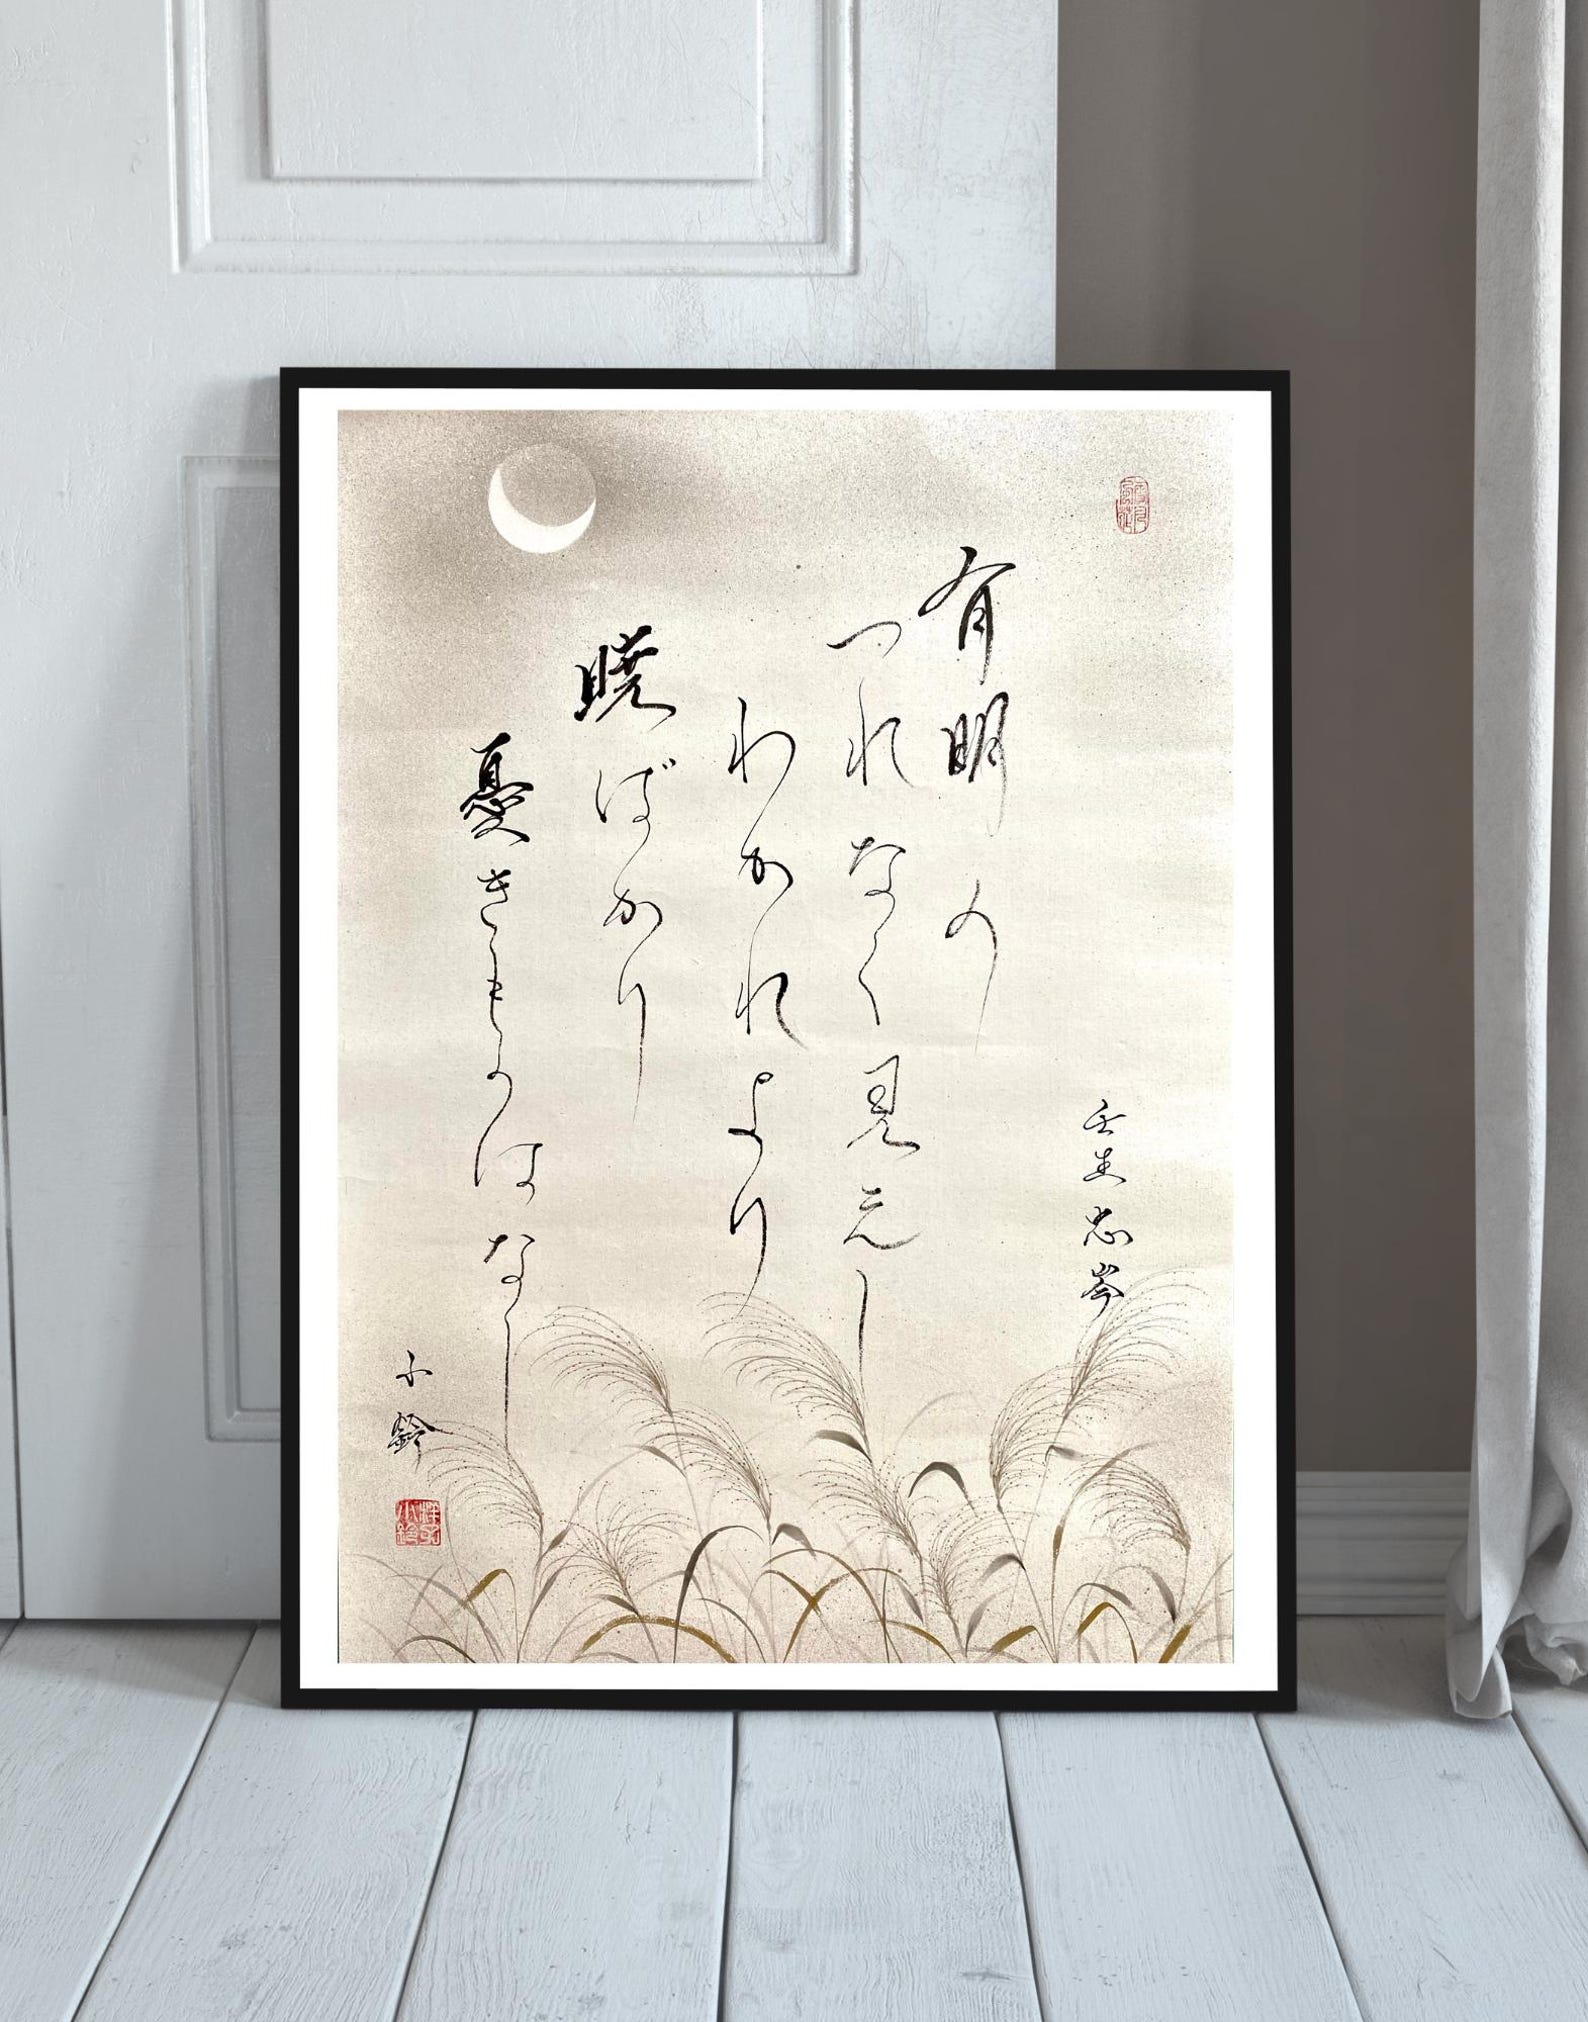 壬生忠岑
有明の
つれなく見えし
わかれより
暁ばかり
憂きものはなし
小鈴